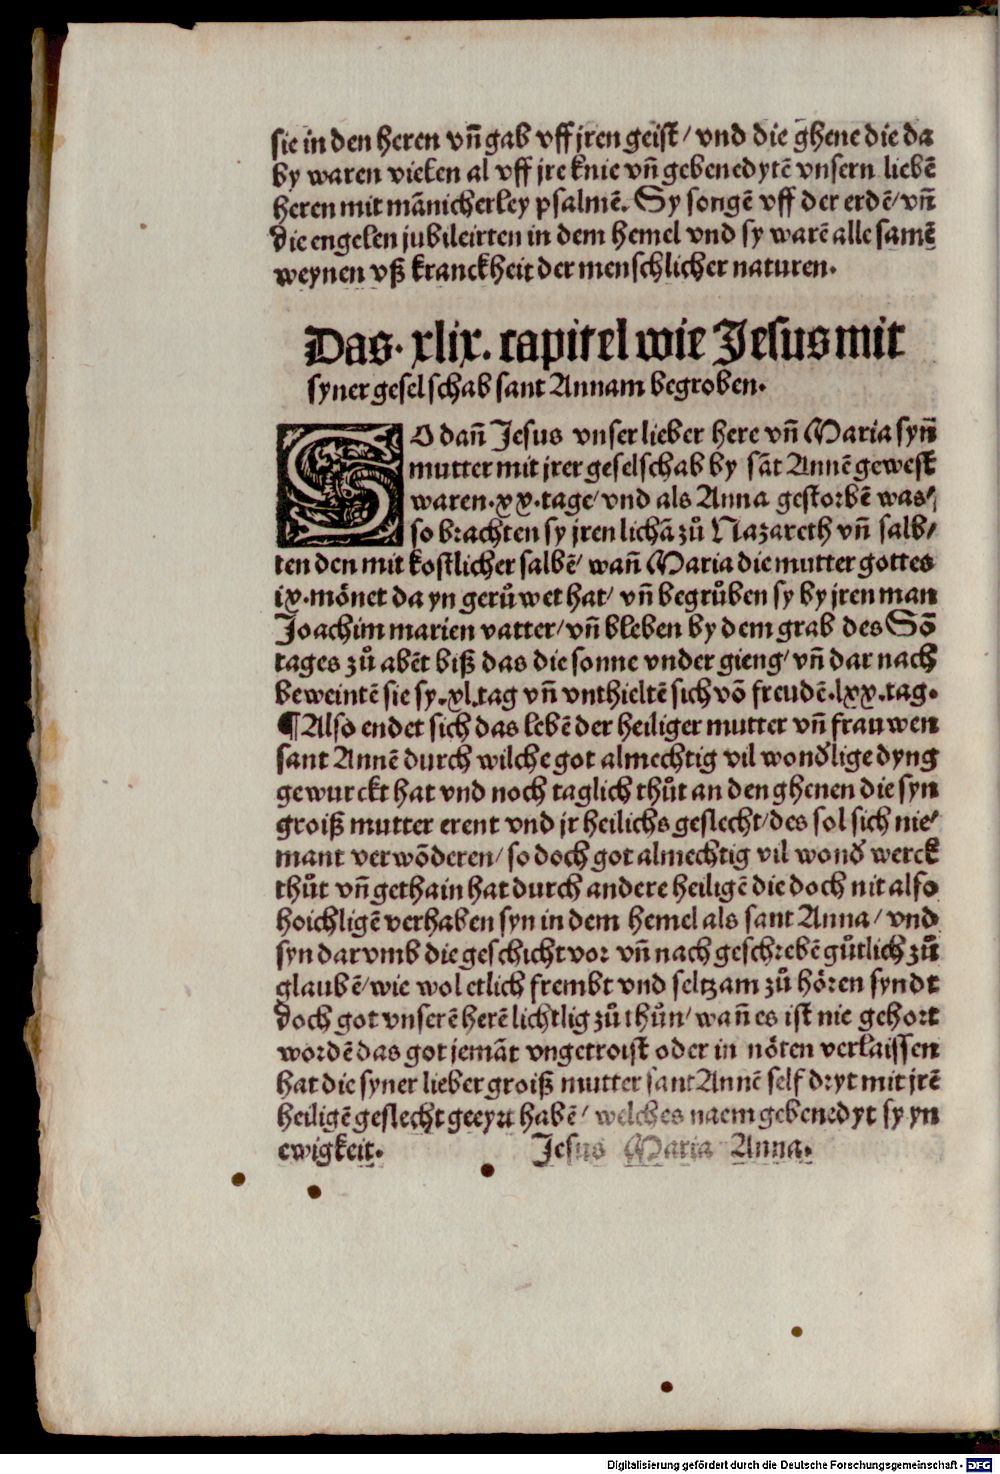 sie in den heren vn̄ gab vff jren geist/ vnd die ghene die da
by waren vielen al vff jre knie vn̄ gebenedytē vnsern liebē
heren mit mānicherley psalmē. Sy songē vff der erdē/ vn̄
die engelen jubileirten in dem hemel vnd sy warē alle samē
weynen vß kranckheit der menschlicher naturen.
Das. xlix. capitel wie Jesus mit
syner geselschab sant Annam begroben.
SO dan̄ Jesus vnser lieber here vn̄ Maria syn̄
mutter mit jrer geselschab by sāt Annē gewest
waren .xx. tage/ vnd als Anna gestorbē was/
so brachten sy jren lichā zů Nazareth vn̄ salb/
ten den mit kostlicher salbē/ wan̄ Maria die mutter gottes
ix. mönet da yn gerůwet hat/ vn̄ begrůben sy by jren man
Joachim marien vatter/ vn̄ bleben by dem grab des Sō
tages zů abēt biß das die sonne vnder gieng/ vn̄ dar nach
beweintē sie sy .xl. tag vn̄ vnthieltē sich vō freudē .lxx. tag.
¶ Also endet sich das lebē der heiliger mutter vn̄ frauwen
sant Annē durch wilche got almechtig vil wonďlige dyng
gewurckt hat vnd noch taglich thůt an den ghenen die syn
groiß mutter erent vnd jr heilichs geslecht/ des sol sich nie/
mant verwōderen/ so doch got almechtig vil wonď werck
thůt vn̄ gethain hat durch andere heiligē die doch nit also
hoichligē verhaben syn in dem hemel als sant Anna/ vnd
syn darvmb die geschicht vor vn̄ nach geschrebē gůtlich zů
glaubē/ wie wol etlich frembt vnd seltzam zů hören syndt
doch got vnserē herē lichtlig zů thůn/ wan̄ es ist nie gehort
wordē das got jemāt vngetroist oder in nöten verlaissen
hat die syner lieber groiß mutter sant Annē self dryt mit jrē
heiligē geslecht geeyrt habē/ welches naem gebenedyt sy yn
ewigkeit. Jesus Maria Anna.
Digitalisierung gefördert durch die Deutsche Forschungsgemeinschaft - DFG